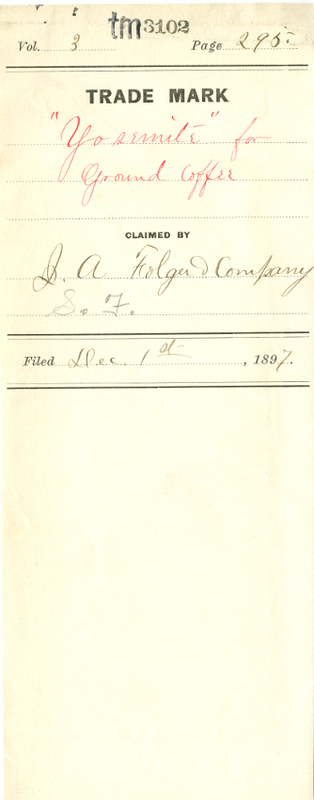 tm3102
Vol. 3 Page 295
TRADE MARK
"Yosemite" for
Ground Coffee
CLAIMED BY
J. A Folger & Company
S. F.
Filed Dec. 1st, 1897.